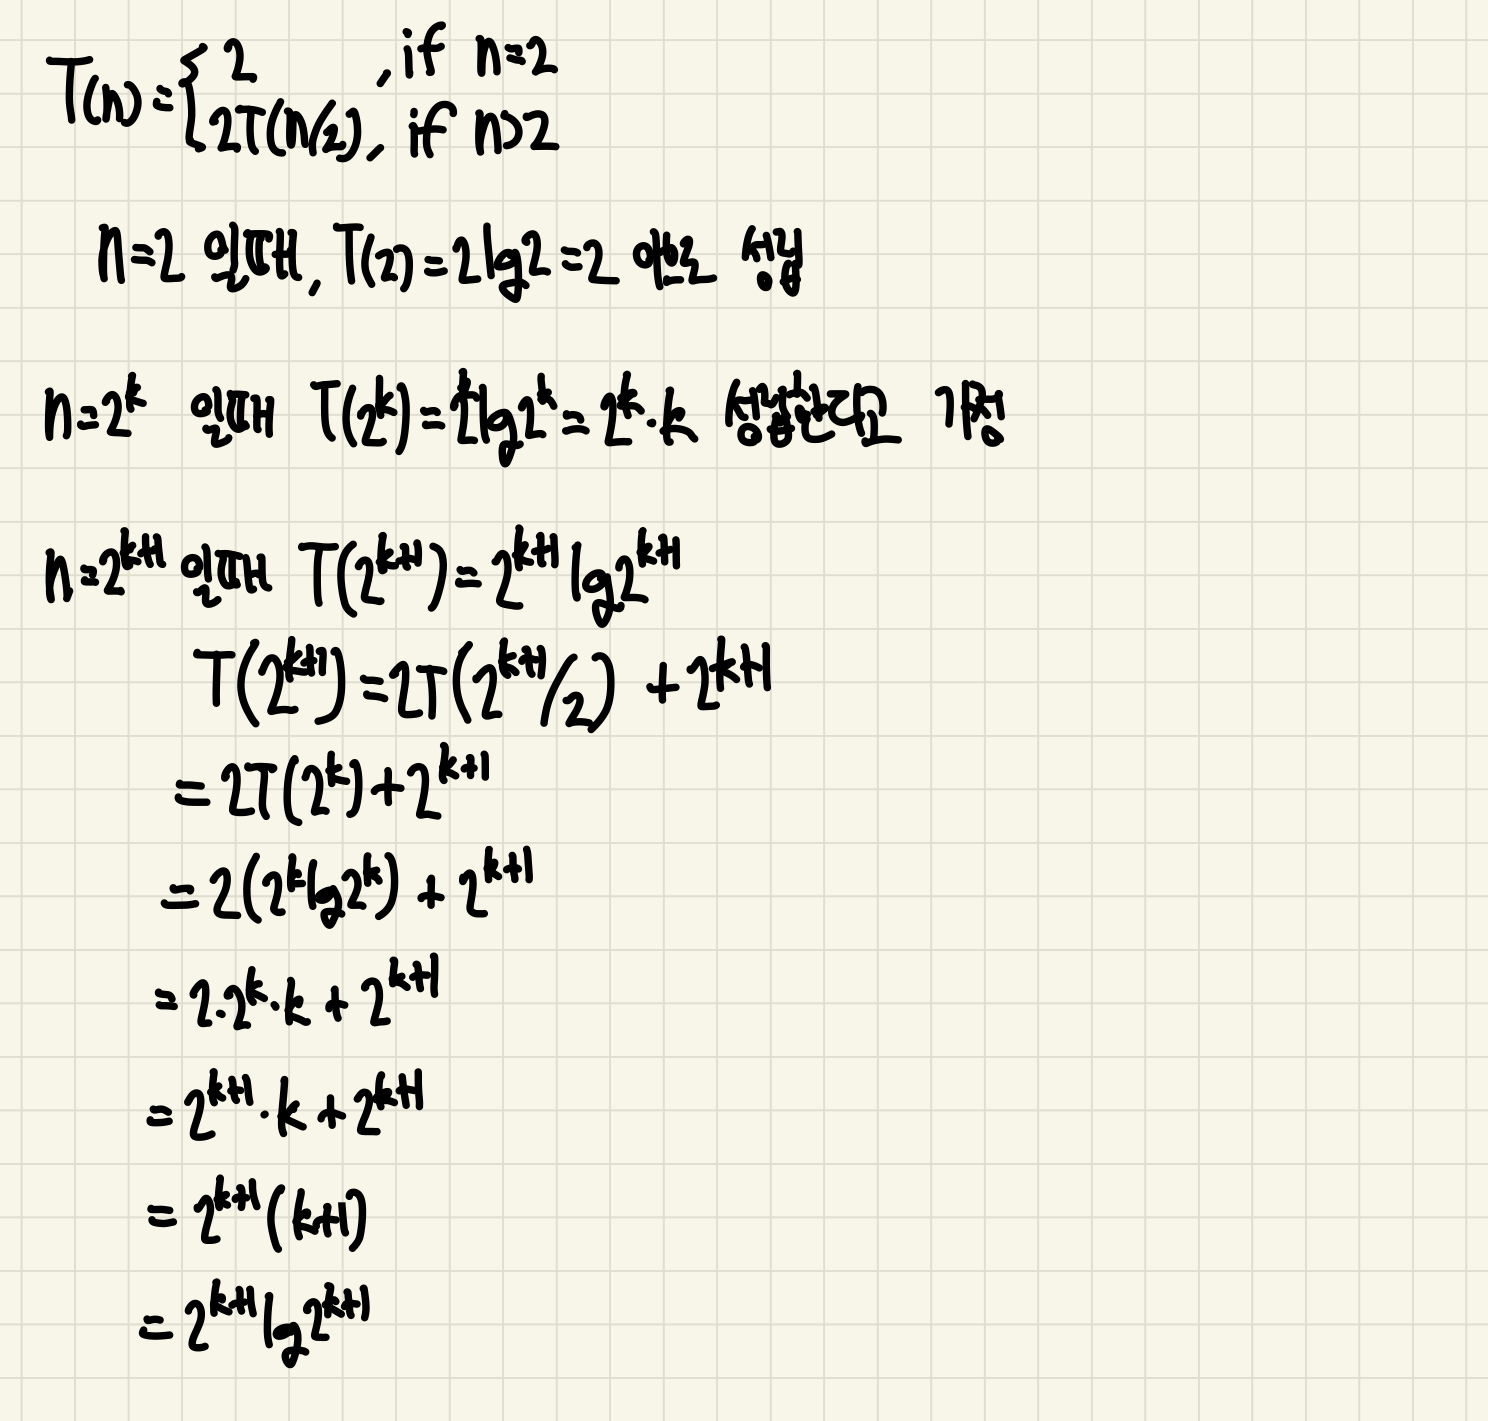 T(n) = { 2 , if n=2
2T(n/2), if n>2
n=2 일때, T(2) = 2lg2 = 2 으로 성립
n=2^k 일때 T(2^k) = 2^k lg2^k = 2^k·k 성립한다고 가정
n=2^{k+1} 일때 T(2^{k+1}) = 2^{k+1} lg2^{k+1}
T(2^{k+1}) = 2T(2^{k+1}/2) + 2^{k+1}
= 2T(2^k) + 2^{k+1}
= 2(2^k lg2^k) + 2^{k+1}
= 2·2^k·k + 2^{k+1}
= 2^{k+1}·k + 2^{k+1}
= 2^{k+1}(k+1)
= 2^{k+1} lg2^{k+1}